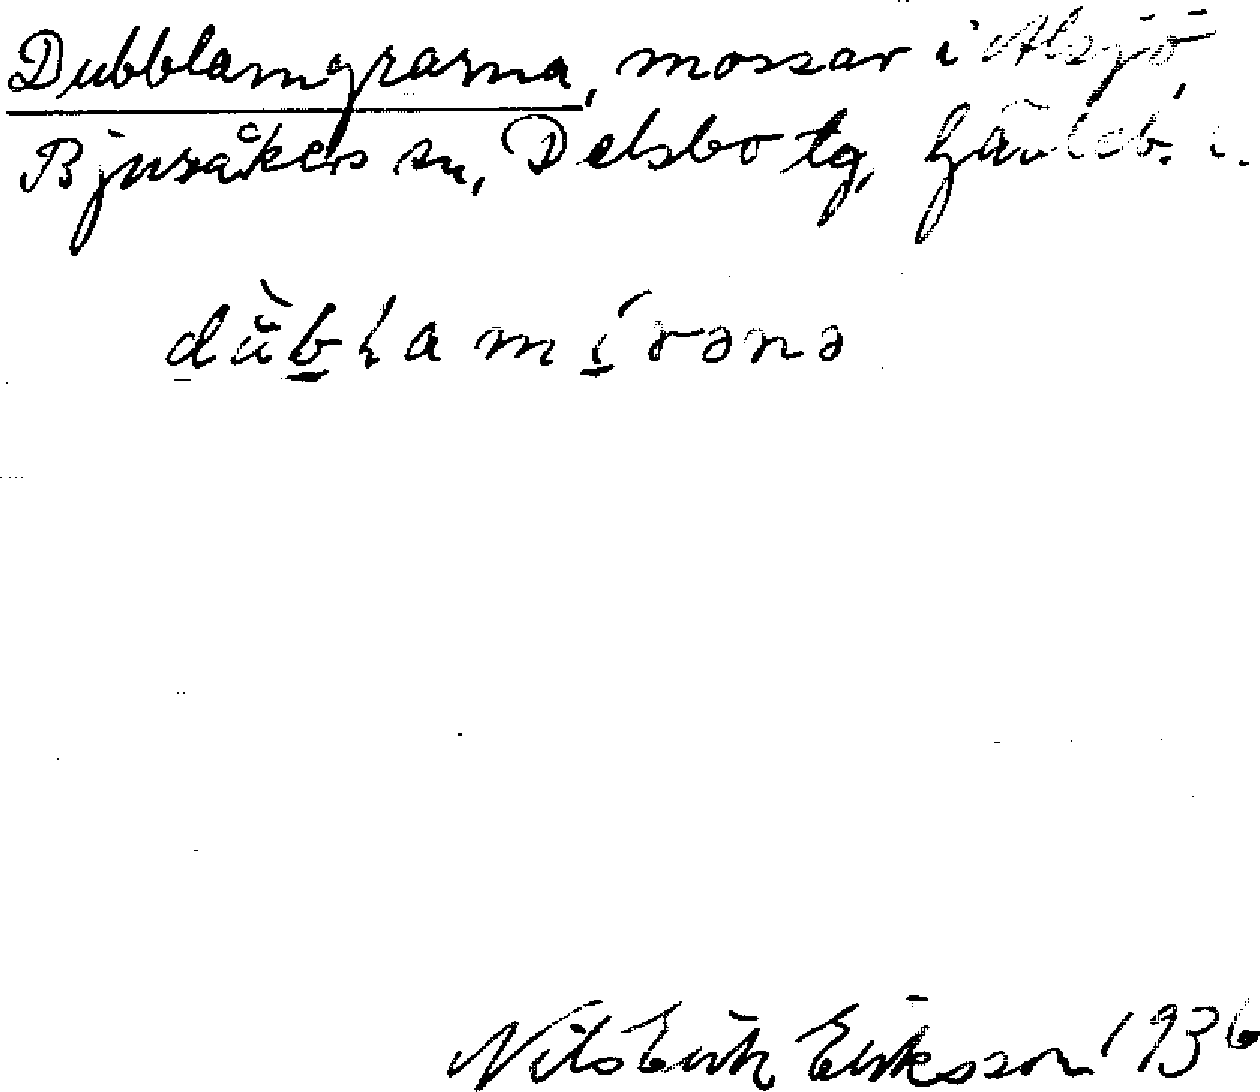 Dubblamyrarna, mossar i Alsjö,
Bjuråkers sn, Delsbo tg, Gävleb. l.
dùbłamírənə
Nils Erik Eriksson 1936